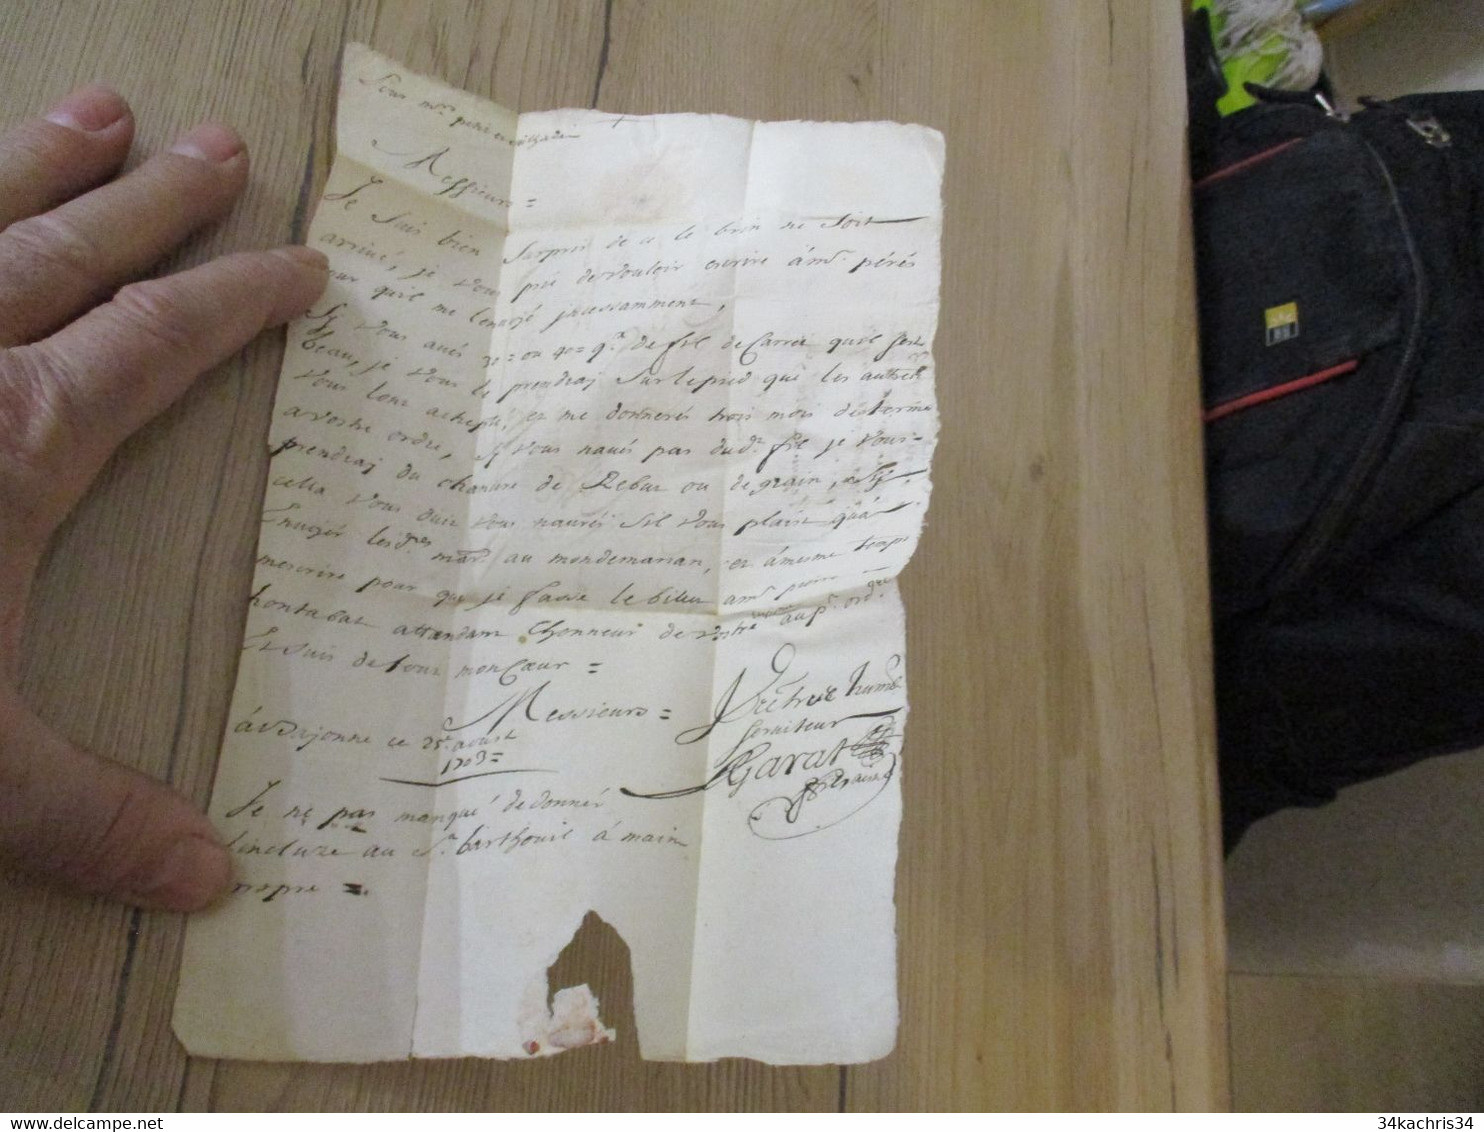 Messieurs =
Je suis bien surpris de ce le brin ne soit
arrivé, je vous prie de vouloir escrire à mr. pérés
pour quil me lenvoye jncessamment,
Sy vous avés 30 = ou 40 = q.x de fil de Carret quil soit
beau, je vous le prendraj sur le pied que les autres
vous lont achepté, et me donnerés trois mois de terme
a vostre ordre, Sy vous navés pas dud.t fil je vous
prendraj du chanvre de Rebut ou de grain, si
cella vous duit vous naurés sil vous plait quà
Envoyer les d.tes mar. au mondemarsan, et à mesme temps
mescrire pour que je fasse le billet a mr.
hontabat attendant lhonneur de vostre
Et suis de tout mon Cœur =
Messieurs =
Vre tres humb
serviteur
àt Bajonne ce 25e aoust
1703 =
Garat
Je ne pas manqué de donner
lincluze au Sr. barthouil à main
propre =
34kachris34